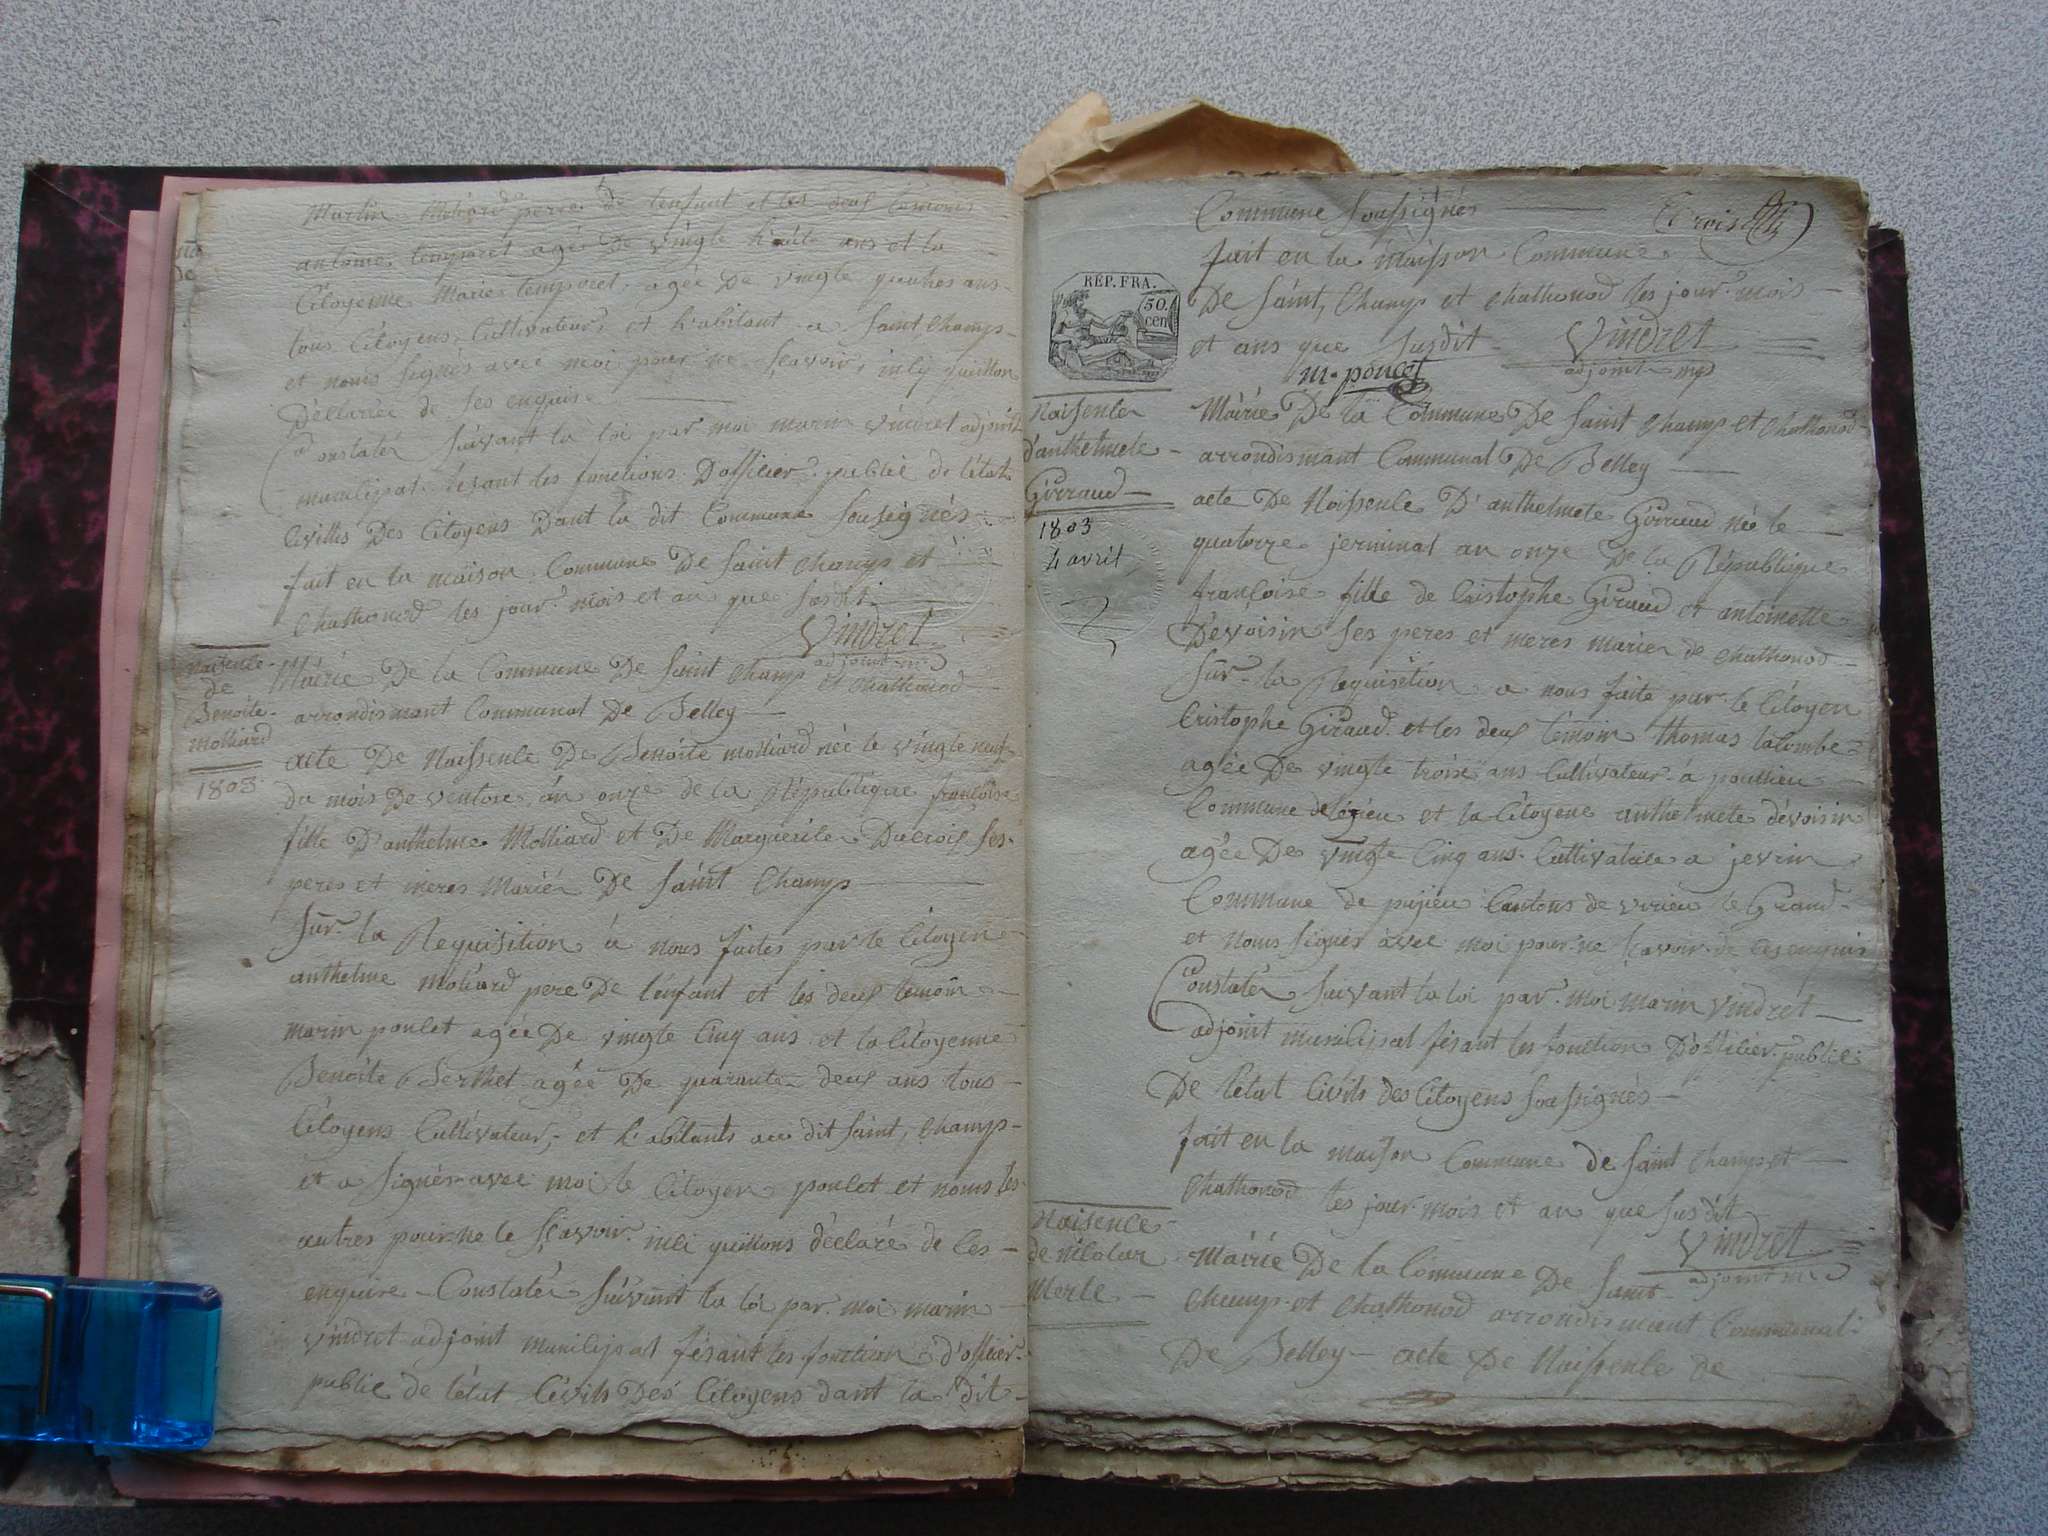 Martin Moliard pere de lenfant et les deus témoins
antoine temporet agée De vingte huite ans et la
Citoyenne Marie temporet agée De vingte quatres ans
tous Citoyens Cultivateurs et habitant a Saint Champ
et nouis signés avec moi pour ne sçavoir
Déllarée de ses enquise
Constatér suivant la loi par moi marin vindret adjoint
municipat fésant les fonctions Doffilier publié de l'état
Civills Des Citoyens Dant la dit Commune sousignés
fait en la maison Commune De Saint Champ et
Chathonod les jour mois et ans que susdit
Vindret
adjoint m
Naisence
de
Benoite
Molliard
1803
Mairie De la Commune De Saint Champ et Chathonod
arrondismant Communal De Belley
acte De Naissenle De Benoite molliard née le vingte neuf
du mois De ventose án onze de la République françoise
fille D'anthelme Molliard et De Marguerite Ducrois ses
peres et meres Mariér De Saint Champ
Sur la Requisition á nous faites par le Citoyen
anthelme Moliard pere De l'enfant et les deus temoin
marin poulet agée De vingte Cinq ans et la Citoyenne
Benoite Berthet agée De quarante deus ans tous
Citoyens Cultivateur et habitants au dit Saint Champ
et a signér avec moi le Citoyen poulet et nouis les
autres pour ne le sçavoir déclaré de ces
enquire Constatér suivant la loi par moi marin
vindret adjoint munilipat fésant les fonction d'offilier
public de l'état Civils Des Citoyens dant la dit
Commune soussignés
trois
fait en la maisson Commune
De Saint Champ et Chathonod les jour mois
et ans que susdit
Vindret
m. poncet
adjoint mp
RÉP. FRA.
50
cen
Naisenle
d'anthelmete
Girraud
1803
4 avril
Mairie De la Commune De Saint Champ et Chathonod
arrondismant Communal De Belley
acte De Naissenle D'anthelmete Girraud née le
quatorze jerminal an onze De la République
françoise fille de Cristophe Giraud et antoinette
Devoisin ses peres et meres marier de Chathonod
Sur la Requisition a nous faite par le Citoyen
Cristophe Giraud et les deus témoin thomas lalombe
agée De vingte troise ans Cultivateur á poullieu
Commune de légieu et la Citoyene anthelmete dévoisin
agée De vingte Cinq ans Cultivatrice a jevrin
Commune de pujieu Cantons de virieu le Grand
et nouis signés avec moi pour ne sçavoir de ces enquis
Constatér suivant la loi par moi marin vindret
adjoint munilipal fésant les fonction D'offilier publié
De l'état Civils des Citoyens soussignés
fait en la maison Commune de Saint Champ et
Chathonod les jour mois et an que susdit
Vindret
adjoint m
Naisenle
de nilolas
Merle
Mairie De la Commune De Saint
Champ et Chathonod arrondismant Communal
De Belley acte De Naissenle de